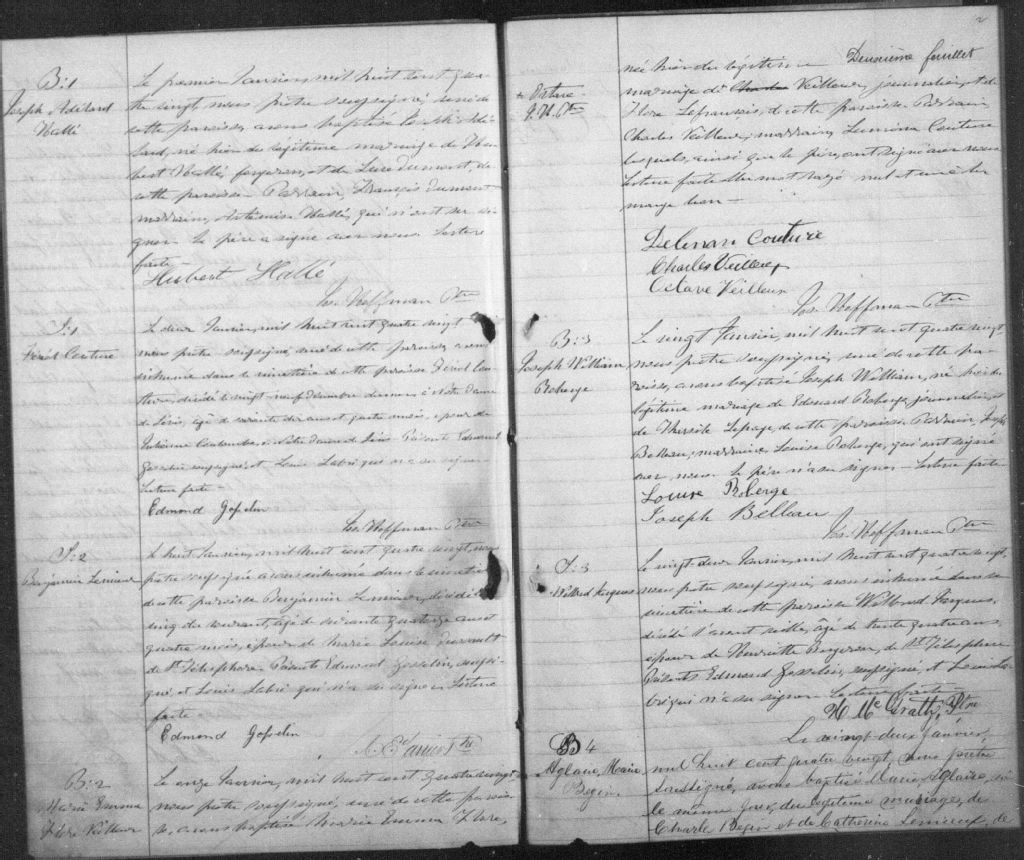 B:1
Joseph Adélard
Hallé
Le premier Janvier, mil huit cent qua-
tre vingt, nous prêtre soussigné, curé de
cette paroisse, avons baptisé
né hier du légitime mariage de Hu-
bert Hallé, forgeron, et de Dumont, de
cette paroisse. Parrain, François Dumont
marraine, Hallé, qui n'ont su si-
gner. Le père a signé avec nous. Lecture
faite.
Hubert Hallé
Jos. Hoffman Ptre
S:1
Couture
Le deux Janvier, mil huit cent quatre vingt
nous prêtre soussigné, curé de cette paroisse, avons
inhumé dans le cimetière de cette paroisse Cou-
ture, décédé le vingt neuf décembre dernier, à Notre Dame
de Lévis, âgé de soixante dix ans et quatre mois, époux de
Notre Dame de Lévis. Présents Edmond
Gosselin soussigné, et Louis Labrie qui n'a su signer.
Lecture faite.
Edmond Gosselin
Jos. Hoffman Ptre
S:2
Benjamin Lemieux
Le huit Janvier, mil huit cent quatre vingt, nous
prêtre soussigné avons inhumé dans le cimetière
de cette paroisse Benjamin Lemieux, décédé le
cinq du courant, âgé de soixante quatorze ans et
quatre mois, époux de Marie Louise
de St Télesphore. Présents Edmond Gosselin, soussi-
gné, et Louis Labrie qui n'a su signer. Lecture
faite.
Edmond Gosselin
Ptre
B:2
Marie Emma
Flore Veilleux
Le onze Janvier, mil huit cent quatre vingt
nous prêtre soussigné, curé de cette parois-
se, avons baptisé Marie Emma Flore,
2
Deuxième feuillet
+ Octave
J. H. Ptre
née hier du légitime
mariage de Charles Veilleux, journalier, et de
Flore Lefrançois, de cette paroisse. Parrain
Charles Veilleux; marraine, Couture
lesquels, ainsi que le père, ont signé avec nous.
Lecture faite. Un mot rayé nul et un à la
marge bon.
Couture
Charles Veilleux
Octave Veilleux
Jos. Hoffman Ptre
B:3
Joseph William
Roberge
Le vingt Janvier, mil huit cent quatre vingt
nous prêtre soussigné, curé de cette pa-
roisse, avons baptisé Joseph William, né hier du
légitime mariage de Edmond Roberge, journalier, et
de Lepage, de cette paroisse. Parrain, Joseph
Belleau; marraine, Louise Roberge, qui ont signé
avec nous. Le père n'a su signer. Lecture faite
Louise Roberge
Joseph Belleau
Jos. Hoffman Ptre
S:3
Wilbrod
Le vingt deux Janvier, mil huit cent quatre vingt,
nous prêtre soussigné, avons inhumé dans le
cimetière de cette paroisse Wilbrod
décédé l'avant veille, âgé de trente quatre ans,
époux de Henriette Bergeron, de St Télesphore
Présents Edmond Gosselin, soussigné, et Louis La-
brie qui n'a su signer. Lecture faite
H. McGrath, Ptre
B 4
Aglaé, Marie
Begin
Le vingt deux Janvier,
mil huit cent quatre vingt, nous prêtre
soussigné, avons baptisé Marie, Aglaé, née
le même jour, du légitime mariage, de
Charle Begin et de Catherine Lemieux, de